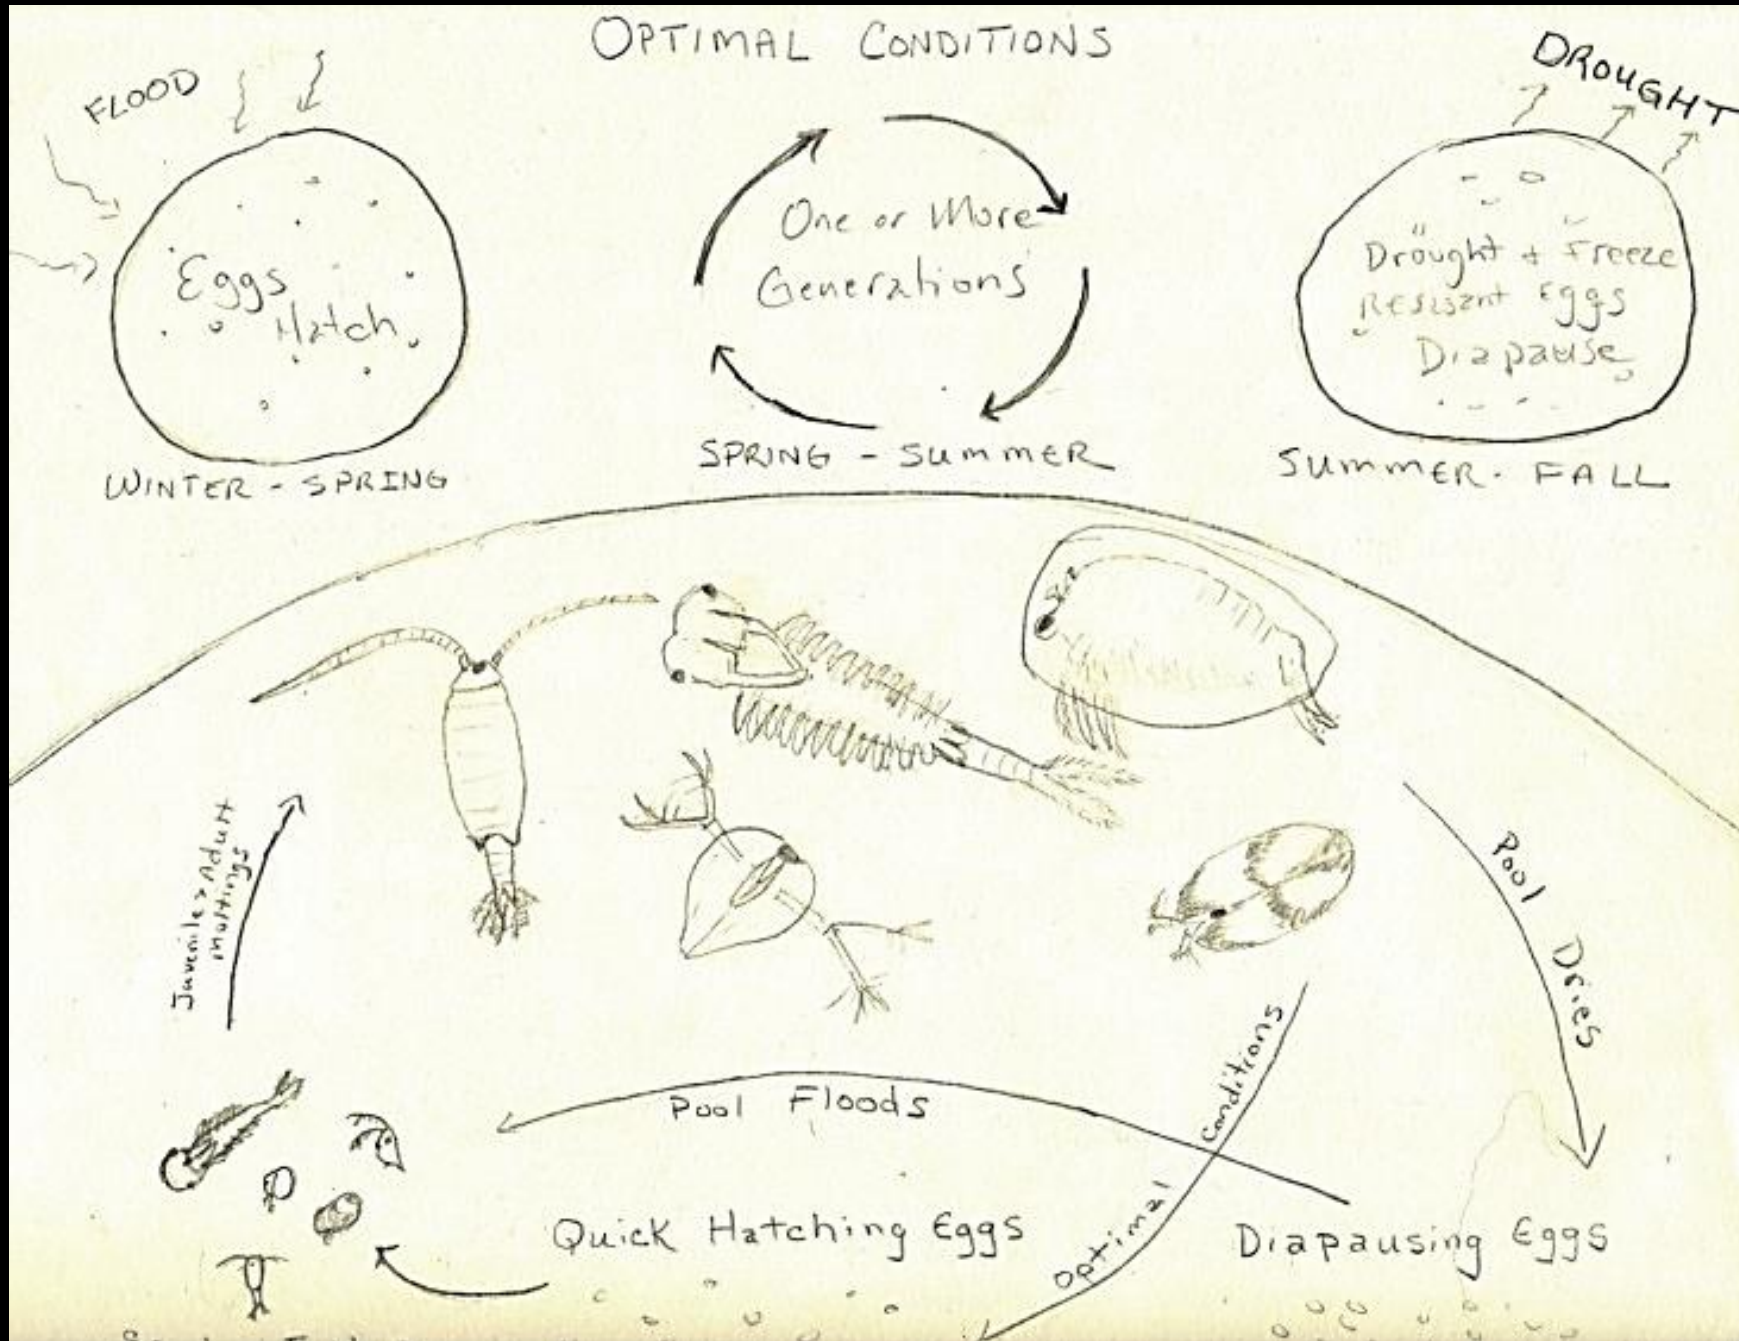 OPTIMAL CONDITIONS
FLOOD
DROUGHT
Eggs
Hatch
One or More
Generations
Drought + Freeze
Resistant Eggs
Diapause
WINTER - SPRING
SPRING - SUMMER
SUMMER - FALL
Juvenile > Adult
moltings
Pool Dries
Pool Floods
Optimal Conditions
Quick Hatching Eggs
Diapausing Eggs